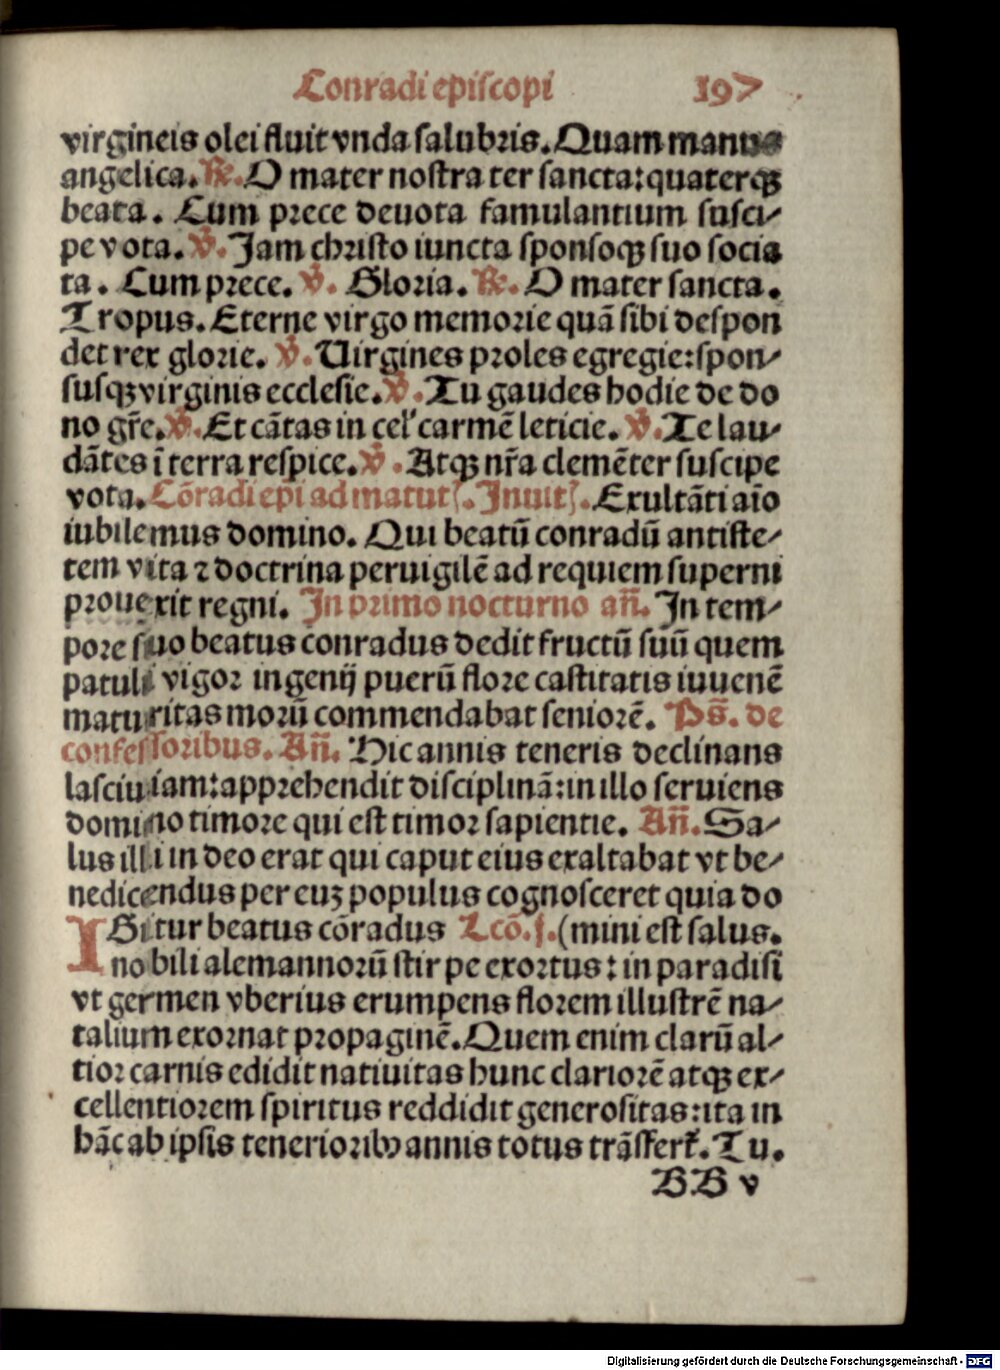 Conradi episcopi 197
virgineis olei fluit vnda salubris. Quam manus
angelica. ℟. O mater nostra ter sancta: quaterqꝫ
beata. Cum prece deuota famulantium susci⸗
pe vota. ℣. Jam christo iuncta sponsoqꝫ suo socia
ta. Cum prece. ℣. Gloria. ℟. O mater sancta.
Tropus. Eterne virgo memorie quā sibi despon
det rex glorie. ℣. Uirgines proles egregie: spon⸗
susqꝫ virginis ecclesie. ℣. Tu gaudes hodie de do
no gr̄e. ℣. Et cātas in cel' carmē leticie. ℣. Te lau⸗
dātes ī terra respice. ℣. Atqꝫ nr̄a clemēter suscipe
vota. Cōradi epi ad matutꝭ. Inuitꝭ. Exultāti aīo
iubilemus domino. Qui beatū conradū antiste⸗
tem vita ⁊ doctrina peruigilē ad requiem superni
prouexit regni. In primo nocturno an̄. In tem⸗
pore suo beatus conradus dedit fructū suū quem
patuli vigor ingenij puerū flore castitatis iuuenē
maturitas morū commendabat seniorē. Ps̄. de
confessoribus. An̄. Hic annis teneris declinans
lasciuiam: apprehendit disciplinā: in illo seruiens
domino timore qui est timor sapientie. An̄. Sa⸗
lus illi in deo erat qui caput eius exaltabat vt be⸗
nedicendus per euꝫ populus cognosceret quia do
IGitur beatus cōradus Lcō. j. (mini est salus.
nobili alemannorū stirpe exortus: in paradisi
vt germen vberius erumpens florem illustrē na⸗
talium exornat propaginē. Quem enim clarū al⸗
tior carnis edidit natiuitas hunc clariorē atqꝫ ex⸗
cellentiorem spiritus reddidit generositas: ita in
hāc ab ipsis tenerioribꝰ annis totus trāsfert̄. Tu.
BB v
Digitalisierung gefördert durch die Deutsche Forschungsgemeinschaft - DFG